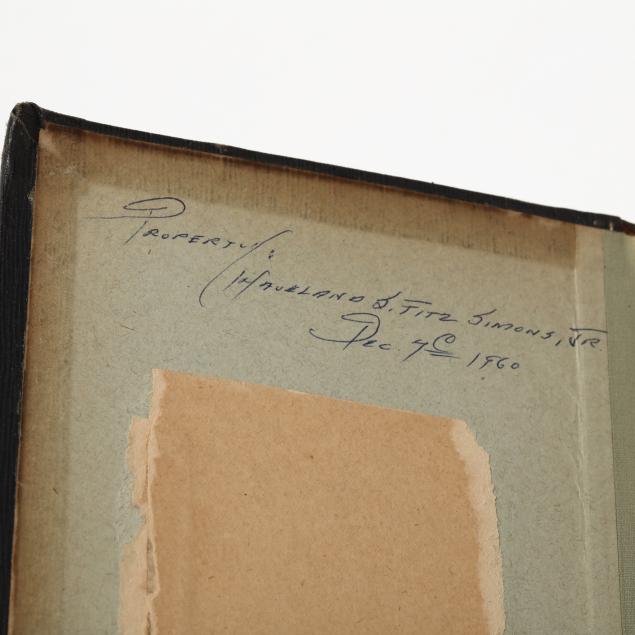 PROPERTY:
HAVELAND S. FITZ SIMONS, JR.
DEC. 4th 1960